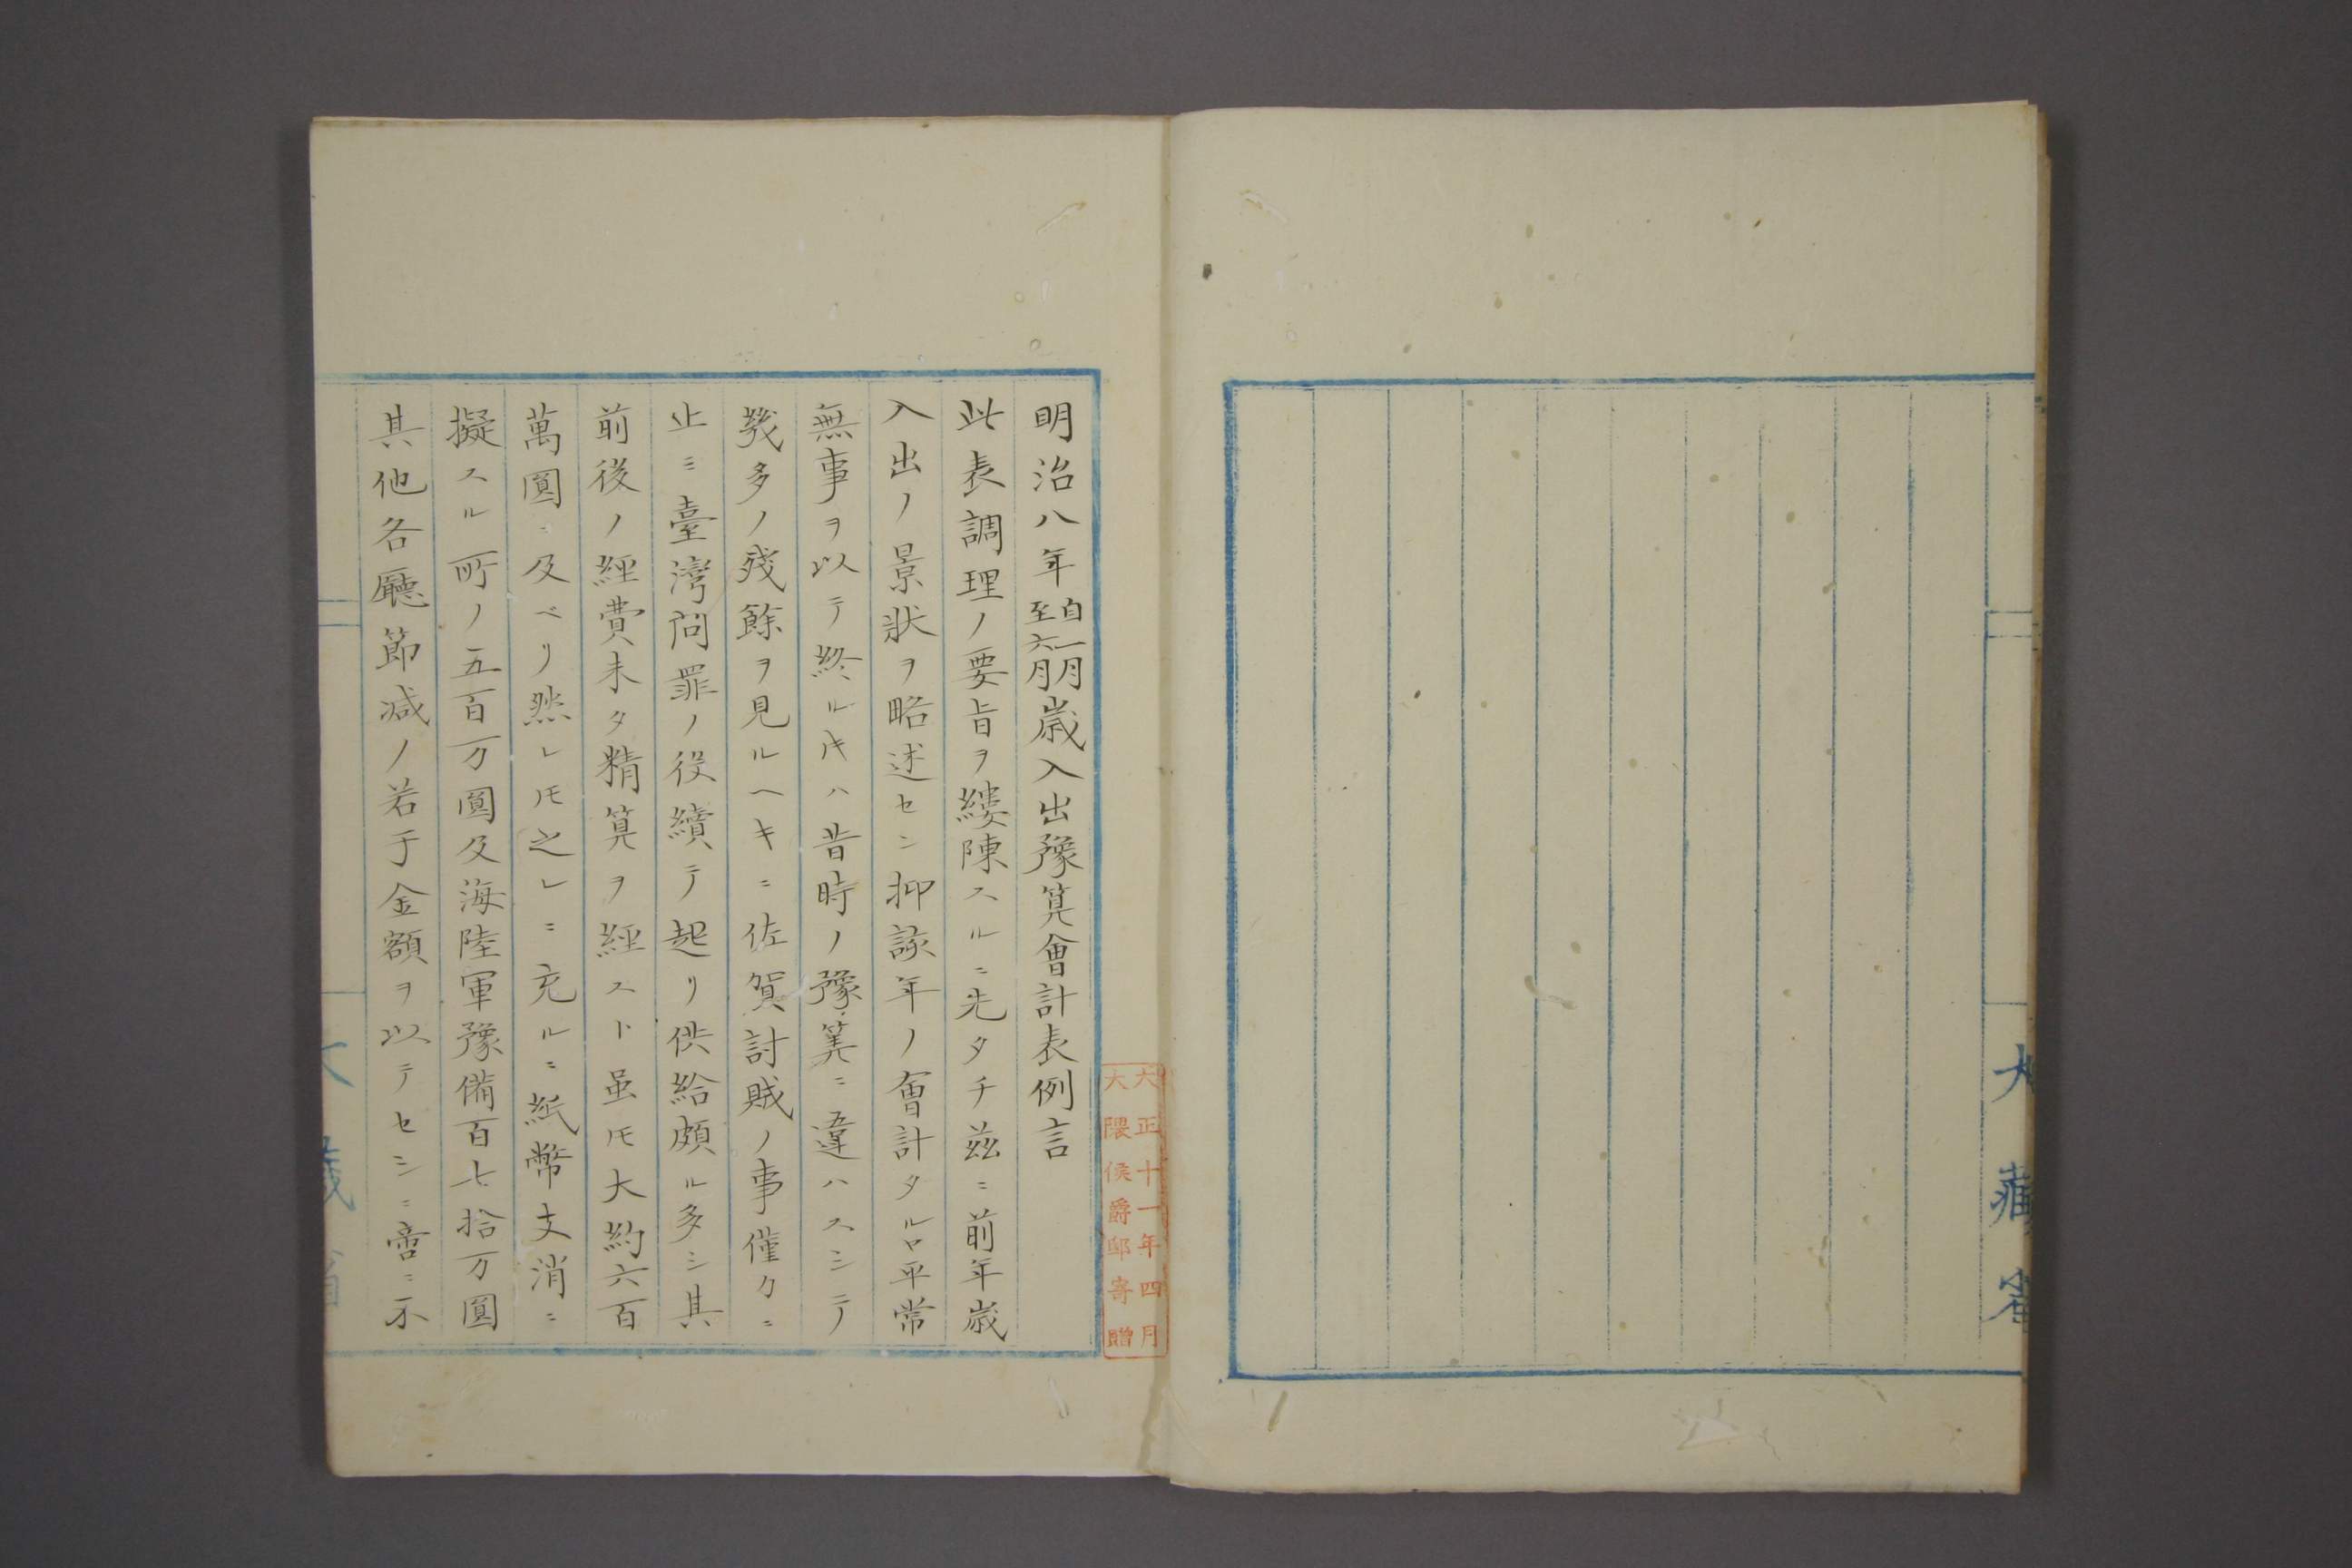 大藏省
大正十一年四月
大隈侯爵邸寄贈
明治八年自一月至六月歳入出豫算會計表例言
此表調理ノ要旨ヲ縷陳スルニ先タチ茲ニ前年歳
入出ノ景狀ヲ略述セン抑該年ノ會計タルヤ平常
無事ヲ以テ終ルヰハ昔時ノ豫算ニ違ハスシテ
幾多ノ残餘ヲ見ルヘキニ佐賀討賊ノ事僅カニ
止ミ臺灣問罪ノ役續テ起リ供給頗ル多シ其
前後ノ經費未タ精算ヲ經スト虽𪜈大約六百
萬圓ニ及ベリ然レ𪜈之レニ充ルニ紙幣支消ニ
擬スル所ノ五百万圓及海陸軍豫備百七拾万圓
其他各廳節减ノ若干金額ヲ以テセシニ啻ニ不
大藏省